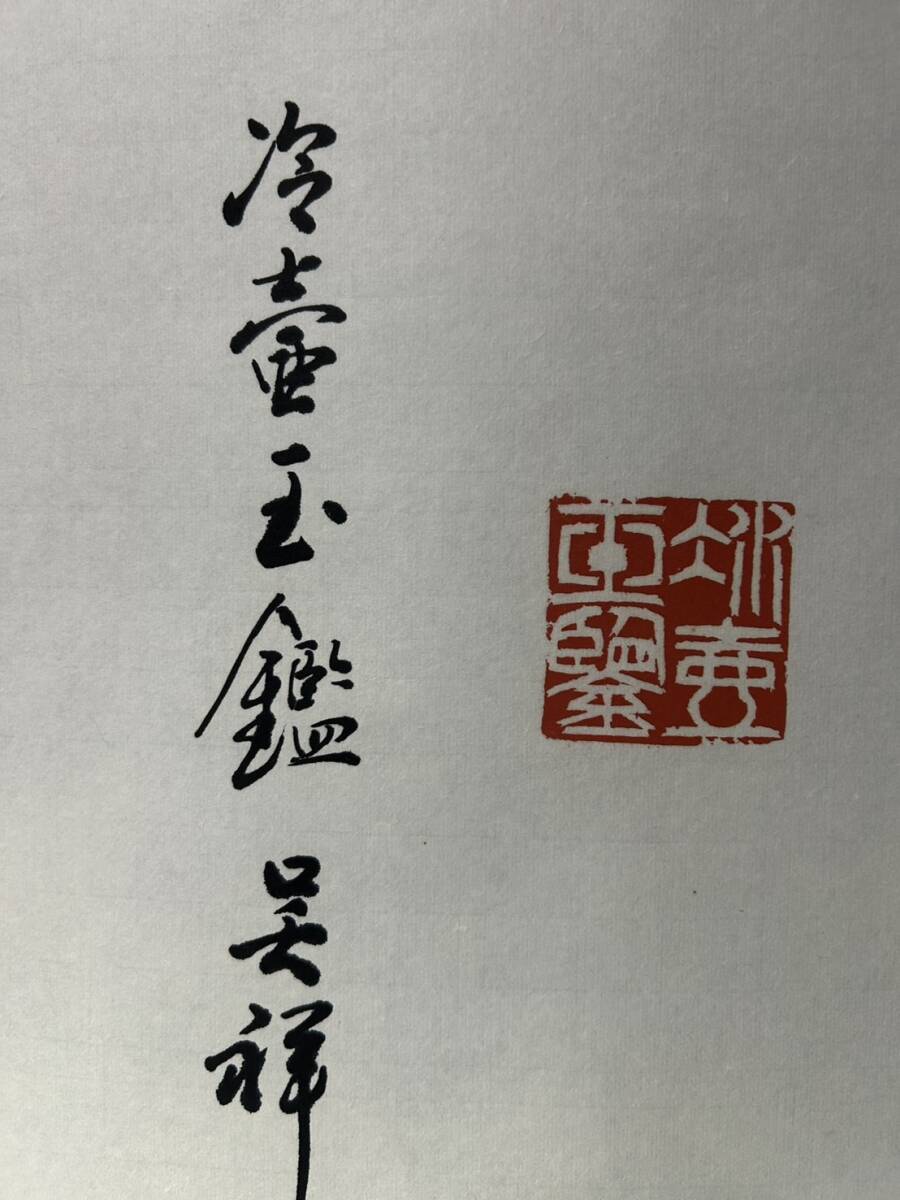 冰壺
玉鑒
冷壺玉鑑 吴祥